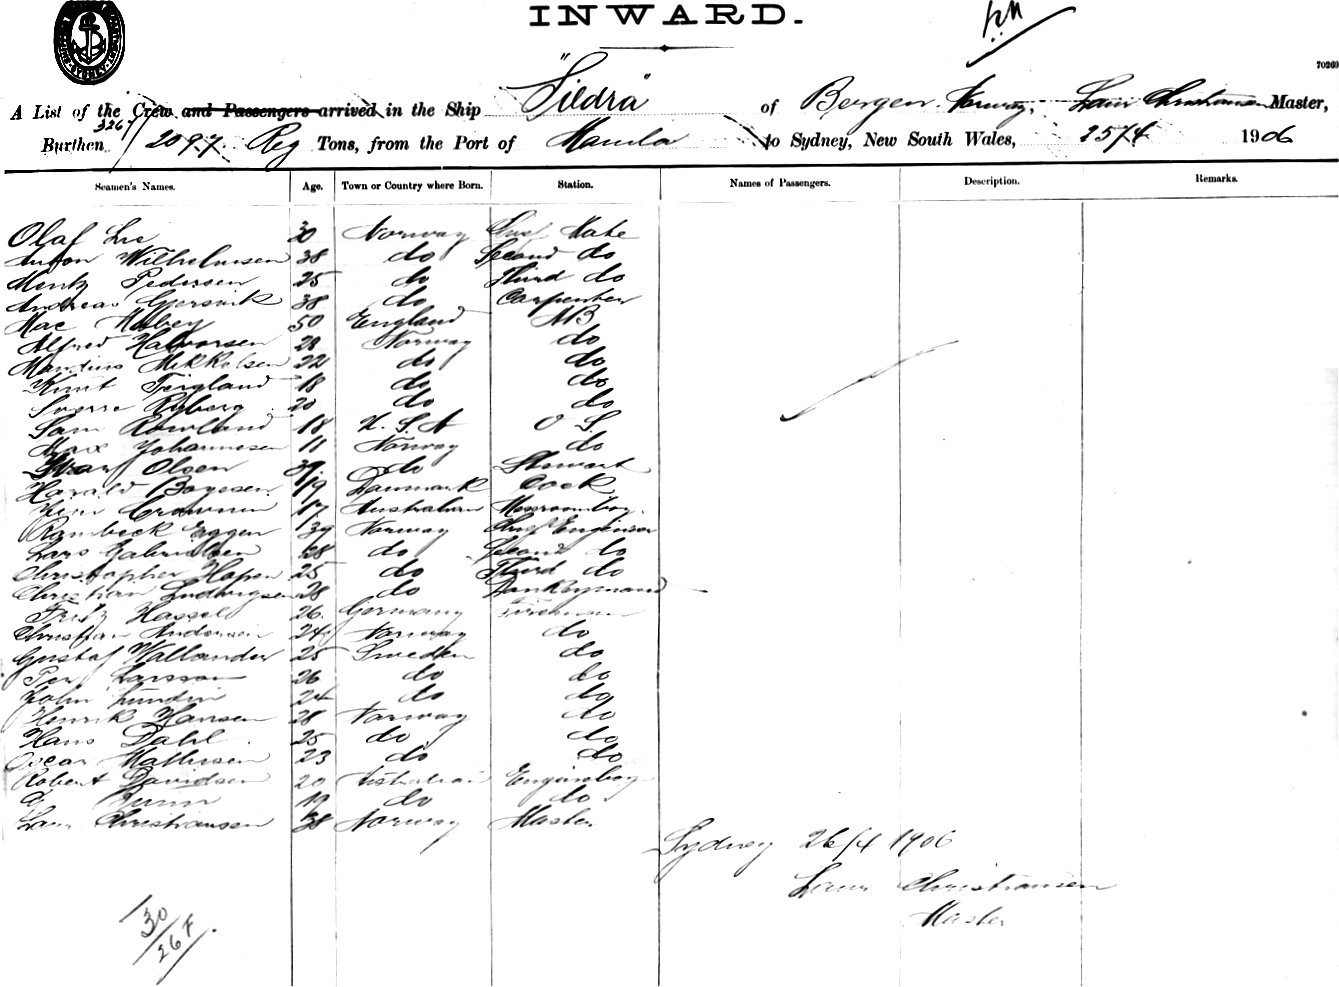 INWARD.
70269
A List of the Crew and Passengers arrived in the Ship "Sildra" of Bergen Norway, Christiansen Master,
Burthen 3267/2097 Reg Tons, from the Port of Manila to Sydney, New South Wales, 25/4 1906
Seamen's Names. Age. Town or Country where Born. Station. Names of Passengers. Description. Remarks.
Olaf Lie 30 Norway First Mate
Anton Wilhelmsen 38 do Second do
Mentz Pedersen 25 do Third do
Andreas Gjersvik 38 do Carpenter
Mac 50 England AB
Alfred Halvorsen 28 Norway do
Mandius Mikkelsen 22 do do
Knut Teigland 18 do do
Sverre Ryberg 20 do do
Sam Rowland 18 U.S.A O S.
Max Johannesen 11 Norway do
Olsen 39. do Stewart
Harald Boyesen 19 Danmark Cock
17 Australian Messroomboy.
Rambeck Eggen 39 Norway Chief Engineer
Lars Gabrielsen 28 do Second do
Christopher Hopen 25 do Third do
Christian Ludwigsen 28 do Donkeymand
Fritz Hassel 26. Germany Firemen
Christian Andersen 24 Norway do
Gustaf Wallander 25 Sweden do
Per Larsson 26 do do
John Lundin 24 do do
Henrik Hansen 28 Norway do
Hans Dahl. 25 do do
Oscar Mathisen 23 do do
Robert Davidsen 20 Engineboy
19 do do
Christiansen 38 Norway Master.
Sydney 26/4 1906
Christiansen
Master
30
26 F.